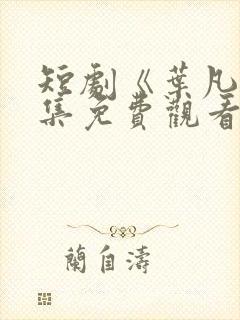 短劇《葉凡
集免費觀看
蘭自濤